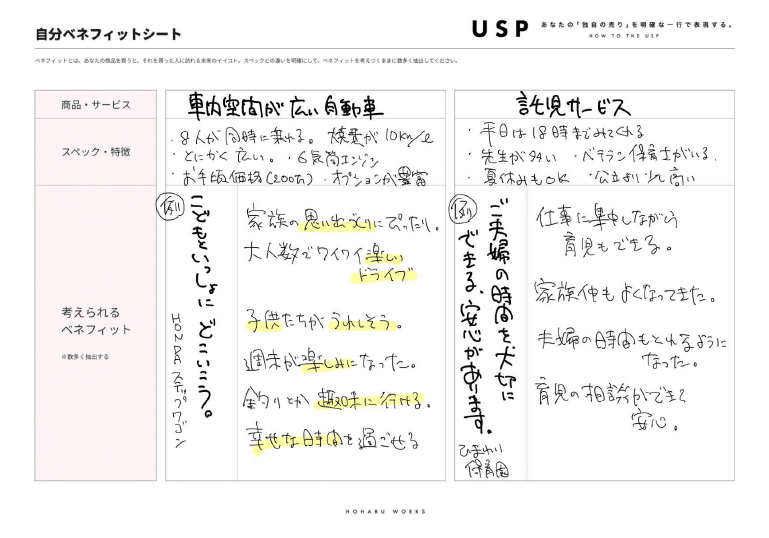 自分ベネフィットシート
USP
あなたの「独自の売り」を明確な一行で表現する。
HOW TO THE USP
ベネフィットとは、あなたの商品を買うと、それを買った人に訪れる未来のイイコト。スペックとの違いを明確にして、ベネフィットを考えつくままに数多く抽出してください。
商品・サービス
車内空間が広い自動車
託児サービス
スペック・特徴
・8人が同時に乗れる。 燃費が10km/ℓ
・とにかく広い。 ・6気筒エンジン
・お手頃価格(200万) ・オプションが豊富
・平日は18時までみてくれる
・先生が多い ・ベテラン保育士がいる.
・夏休みもOK ・公立より少し高い
考えられる
ベネフィット
※数多く抽出する
例
こどもといっしょに どこいこう。
HONDA ステップワゴン
家族の思い出づくりにぴったり。
大人数でワイワイ楽しい
ドライブ
子供たちがうれしそう。
週末が楽しみになった。
釣りとか 趣味に行ける。
幸せな時間を過ごせる
例
ご夫婦の時間を、大切に
できる、安心があります。
ひまわり
保育園
仕事に集中しながら
育児もできる。
家族仲もよくなってきた。
夫婦の時間もとれるように
なった。
育児の相談ができて
安心。
HOHARU WORKS